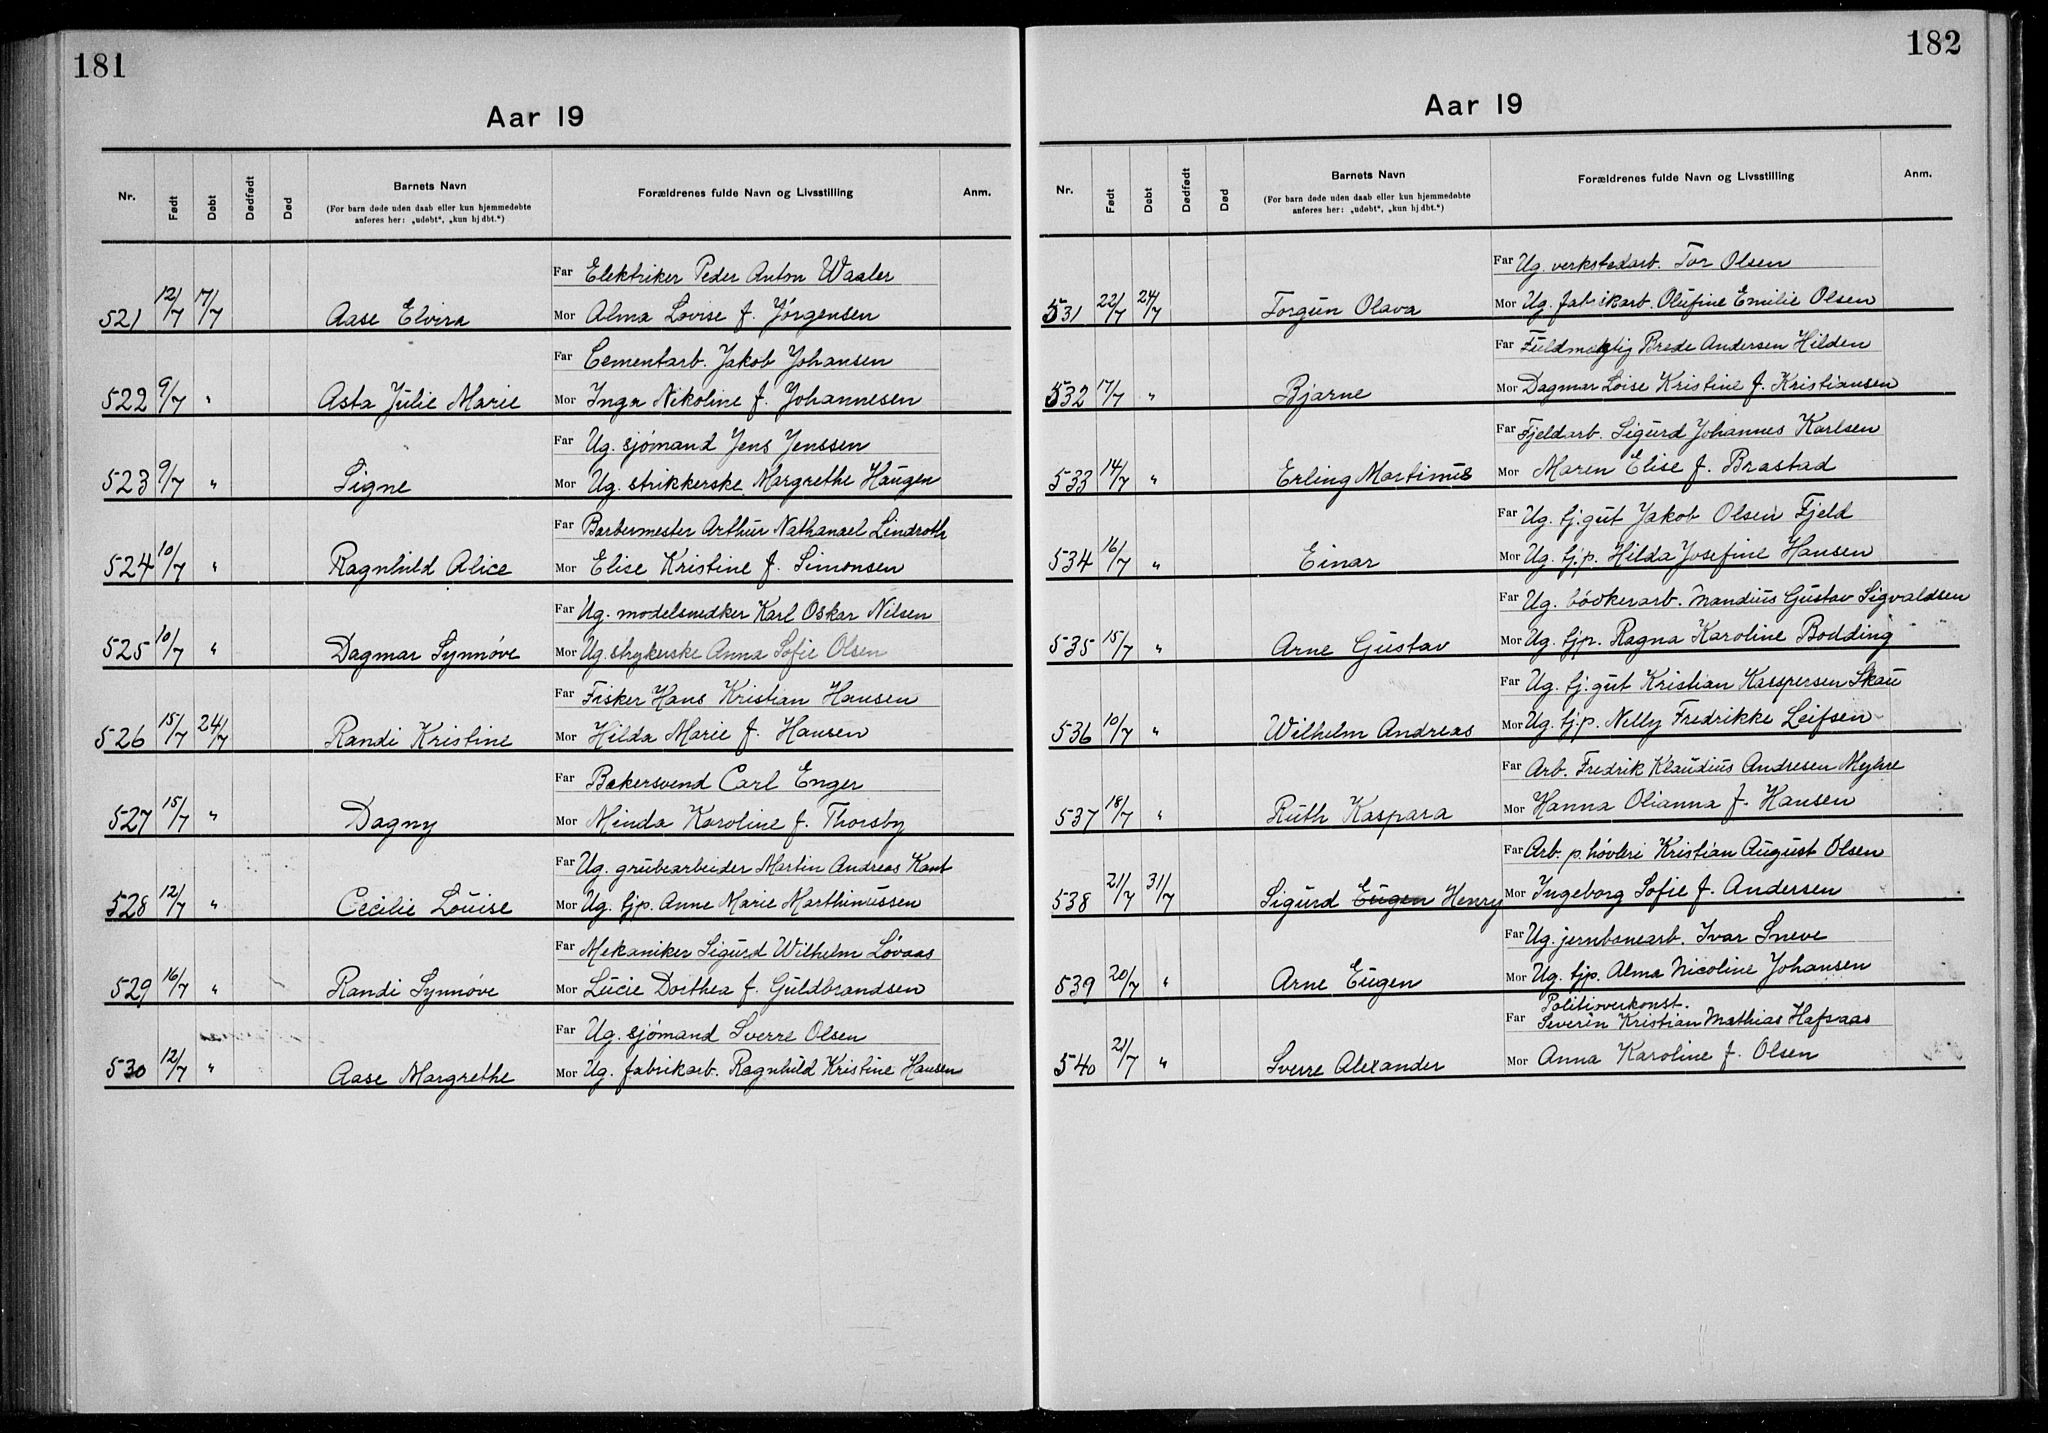 181
Aar 19
Nr. Født Døbt Dødfødt Død Barnets Navn Forældrenes fulde Navn og Livsstilling Anm.
(For barn døde uden daab eller kun hjemmedøbte
anføres her: „udøbt“, „kun hj dbt.“)
Far Elektriker Peder Anton Waaler
521 12/7 17/7 Aase Elvira Mor Alma Lovise f. Jørgensen
Far Cementarb. Jakob Johansen
522 9/7 " Asta Julie Marie Mor Inga Nikoline f. Johannesen
Far Ug. sjømand Jens Jenssen
523 9/7 " Signe Mor Ug. strikkerske Margrethe Haugen
Far Barbermester Arthur Nathanael Lindroth
524 10/7 " Ragnhild Alice Mor Elise Kristine f. Simonsen
Far Ug. modelsnedker Karl Oskar Nilsen
525 10/7 " Dagmar Synnøve Mor Ug. strykerske Anna Sofie Olsen
Far Fisker Hans Kristian Hansen
526 15/7 24/7 Randi Kristine Mor Hilda Marie f. Hansen
Far Bakersvend Carl Enger
527 15/7 " Dagny Mor Minda Karoline f. Thorsby
Far Ug. grubearbeider Martin Andreas Kant
528 12/7 " Cecilie Louise Mor Ug. tjp. Anne Marie Marthinussen
Far Mekaniker Sigurd Wilhelm Løvaas
529 16/7 " Randi Synnøve Mor Lucie Dorthea f. Guldbrandsen
Far Ug. sjømand Sverre Olsen
530 12/7 " Aase Margrethe Mor Ug. fabrikarb. Ragnhild Kristine Hansen
182
Aar 19
Nr. Født Døbt Dødfødt Død Barnets Navn Forældrenes fulde Navn og Livsstilling Anm.
(For barn døde uden daab eller kun hjemmedøbte
anføres her: „udøbt“, „kun hj dbt.“)
Far Ug. verkstedarb. Tor Olsen
531 22/7 24/7 Torgun Olava Mor Ug. fabrikarb. Olufine Emilie Olsen
Far Fuldmegtig Brede Andersen Hilden
532 17/7 " Bjarne Mor Dagmar Loise Kristine f. Kristiansen
Far Fjeldarb. Sigurd Johannes Karlsen
533 14/7 " Erling Martinus Mor Maren Elise f. Brastad
Far Ug. tj.gut Jakob Olsen Fjeld
534 16/7 " Einar Mor Ug. tj.p. Hilda Josefine Hansen
Far Ug. bødkerarb. Mandius Gustav Sigvaldsen
535 15/7 " Arne Gustav Mor Ug. tjp. Ragna Karoline Bodding
Far Ug. tj.gut Kristian Kaspersen Skau
536 10/7 " Wilhelm Andreas Mor Ug. tj.p. Nelly Fredrikke Leifsen
Far Arb. Fredrik Klaudius Andresen Myhre
537 18/7 " Ruth Kaspara Mor Hanna Olianna f. Hansen
Far Arb. p. høvleri Kristian August Olsen
538 21/7 31/7 Sigurd Eugen Henry Mor Ingeborg Sofie f. Andersen
Far Ug. jernbanearb. Ivar Sneve
539 20/7 " Arne Eugen Mor Ug. tjp. Alma Nicoline Johansen
Politioverkonst.
Far Severin Kristian Mathias Hafsaas
540 21/7 " Sverre Alexander Mor Anna Karoline f. Olsen